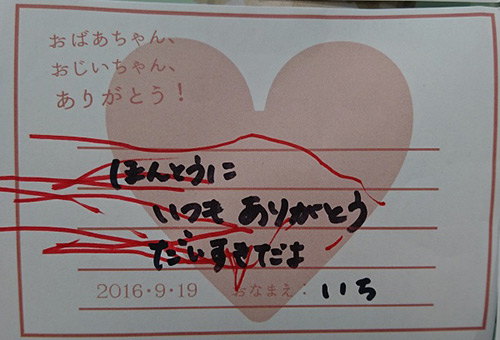 おばあちゃん、
おじいちゃん、
ありがとう！
ほんとうに
いつも ありがとう
だいすきだよ
2016・9・19 おなまえ： いち